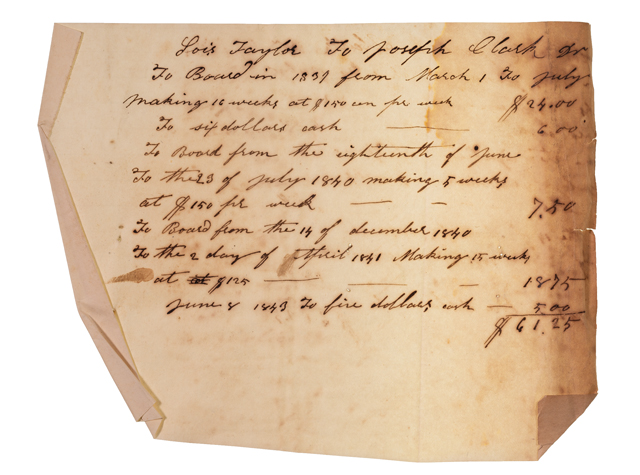 Lois Taylor To Joseph Clark Dr
To Board in 1839 from March 1 To July
making 16 weeks at $150 cen pr week $24.00
To six dollars cash 6.00
To Board from the eighteenth of June
To the 23 of July 1840 making 5 weeks
at $150 pr week 7.50
To Board from the 14 of december 1840
To the 2 day of April 1841 Making 15 weeks
at $125 1875
June 8 1843 To five dollars cash 5.00
$61.25